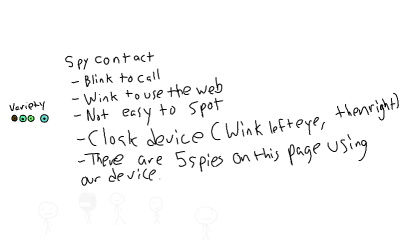 Spy contact
- Blink to call
- Wink to use the web
- Not easy to spot
- Cloak device (Wink left eye, then right)
- There are 5 spies on this page using
our device.
Variety